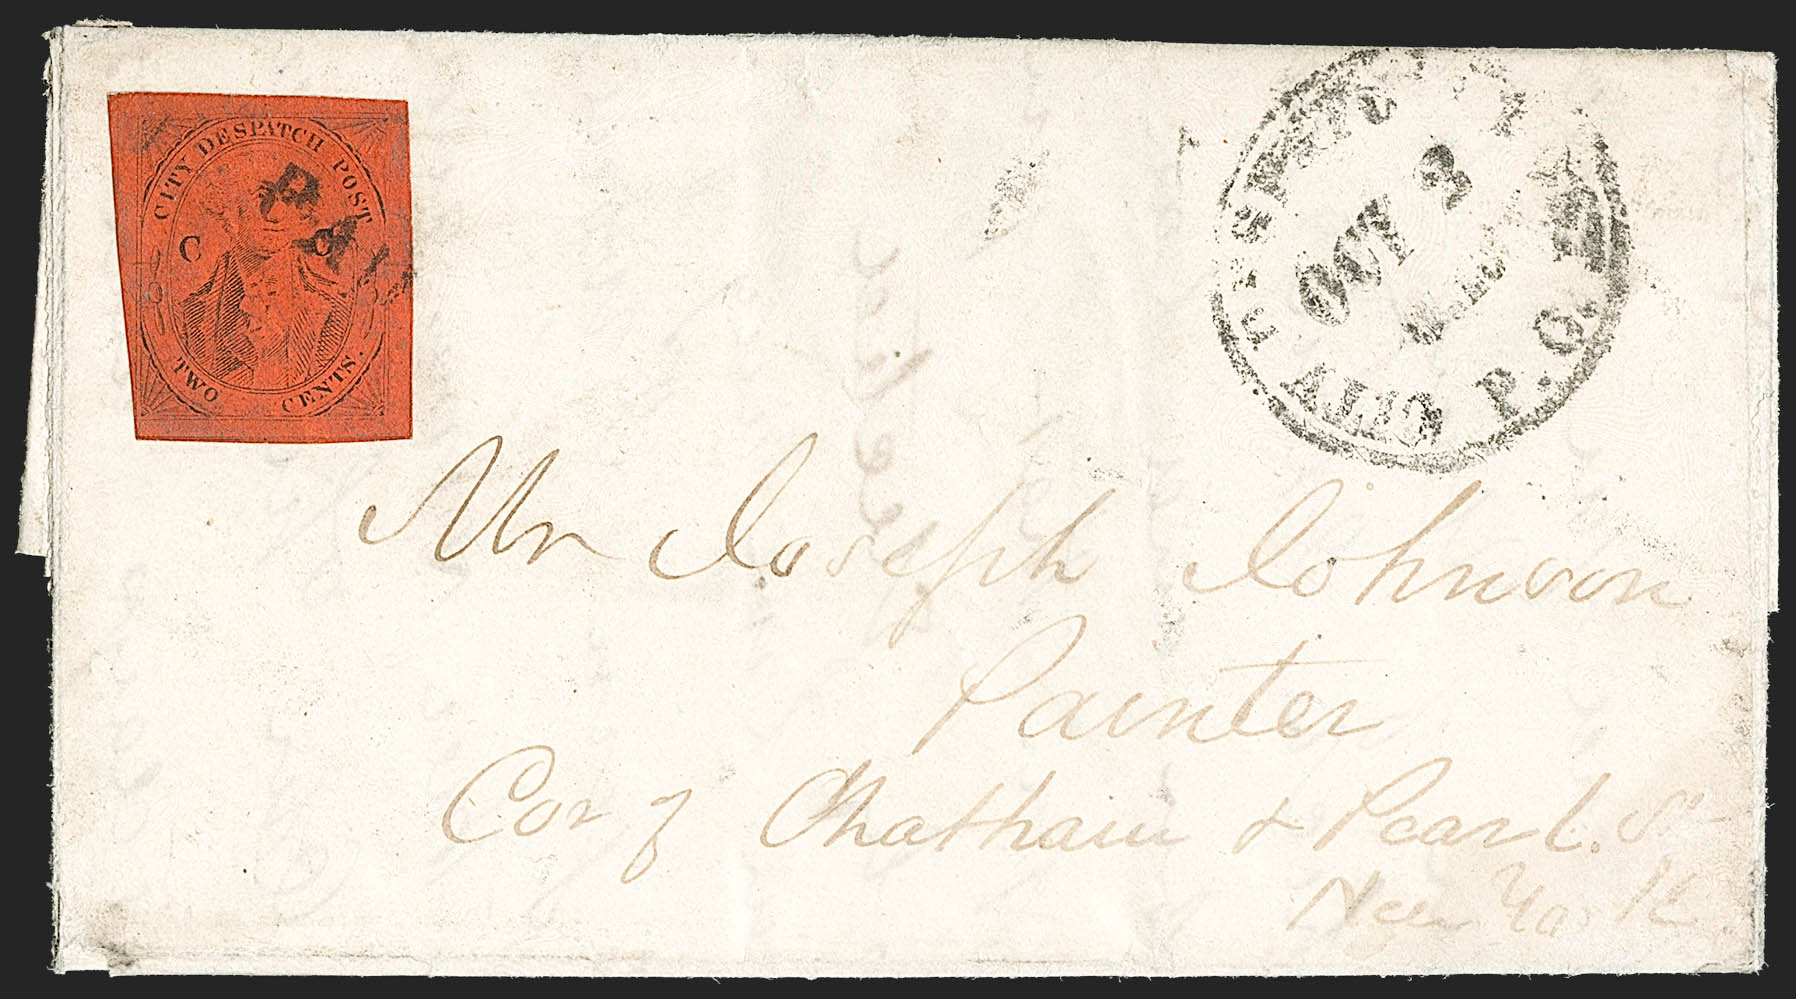 CITY DESPATCH POST
C C
TWO CENTS.
PAI
U.S.
CITY P.O.
OCT 3
Mr Joseph Johnson
Painter
Cor of Chatham & Pearl. St
New York